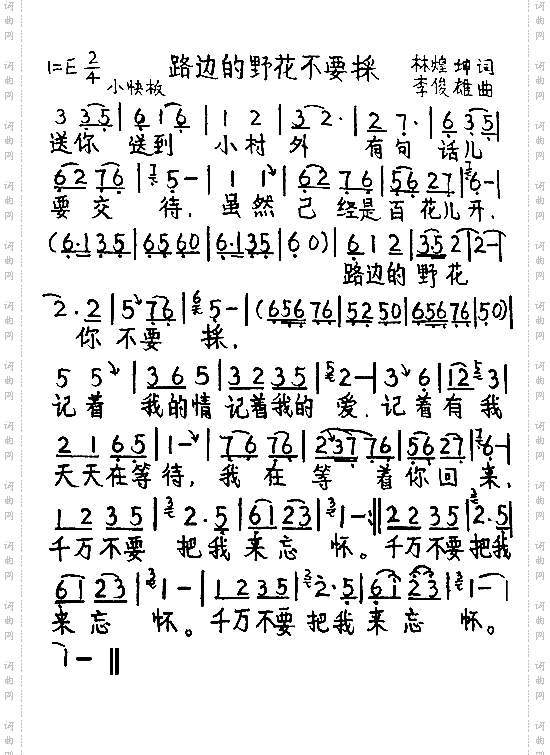 1=E 2/4 路边的野花不要採 林煌坤词
小快板 李俊雄曲
3 35 | 616 | 1 2 | 32· | 2 7· | 6 35 |
送你 送到 小村外 有句话儿
62 76 | 5 - | 1 1 | 62 76 | 56 27 | 6 - |
要交待，虽然已经是百花儿开，
(6·135 | 6560 | 6·135 | 60) | 612 | 352 | 2 - |
路边的野花
2·2 | 5 76 | 5 - | (6565 76 | 52 50 | 6565 76 | 50) |
你不要採，
5 5 | 365 | 3235 | 2 - | 3 6 | 12 3 |
记着 我的情 记着我的爱，记着有我
21 65 | 1 - | 76 76 | 2376 | 56 27 | 6 - |
天天在等待，我在等着你回来，
1235 | 2·5 | 61 23 | 1 - :‖ 2235 | 2·5 |
千万不要把我来忘怀。千万不要把我
61 23 | 1 - | 1235 | 2·5 | 61 23 | 1 - |
来忘怀。千万不要把我来忘怀。
1 - ‖
词曲网